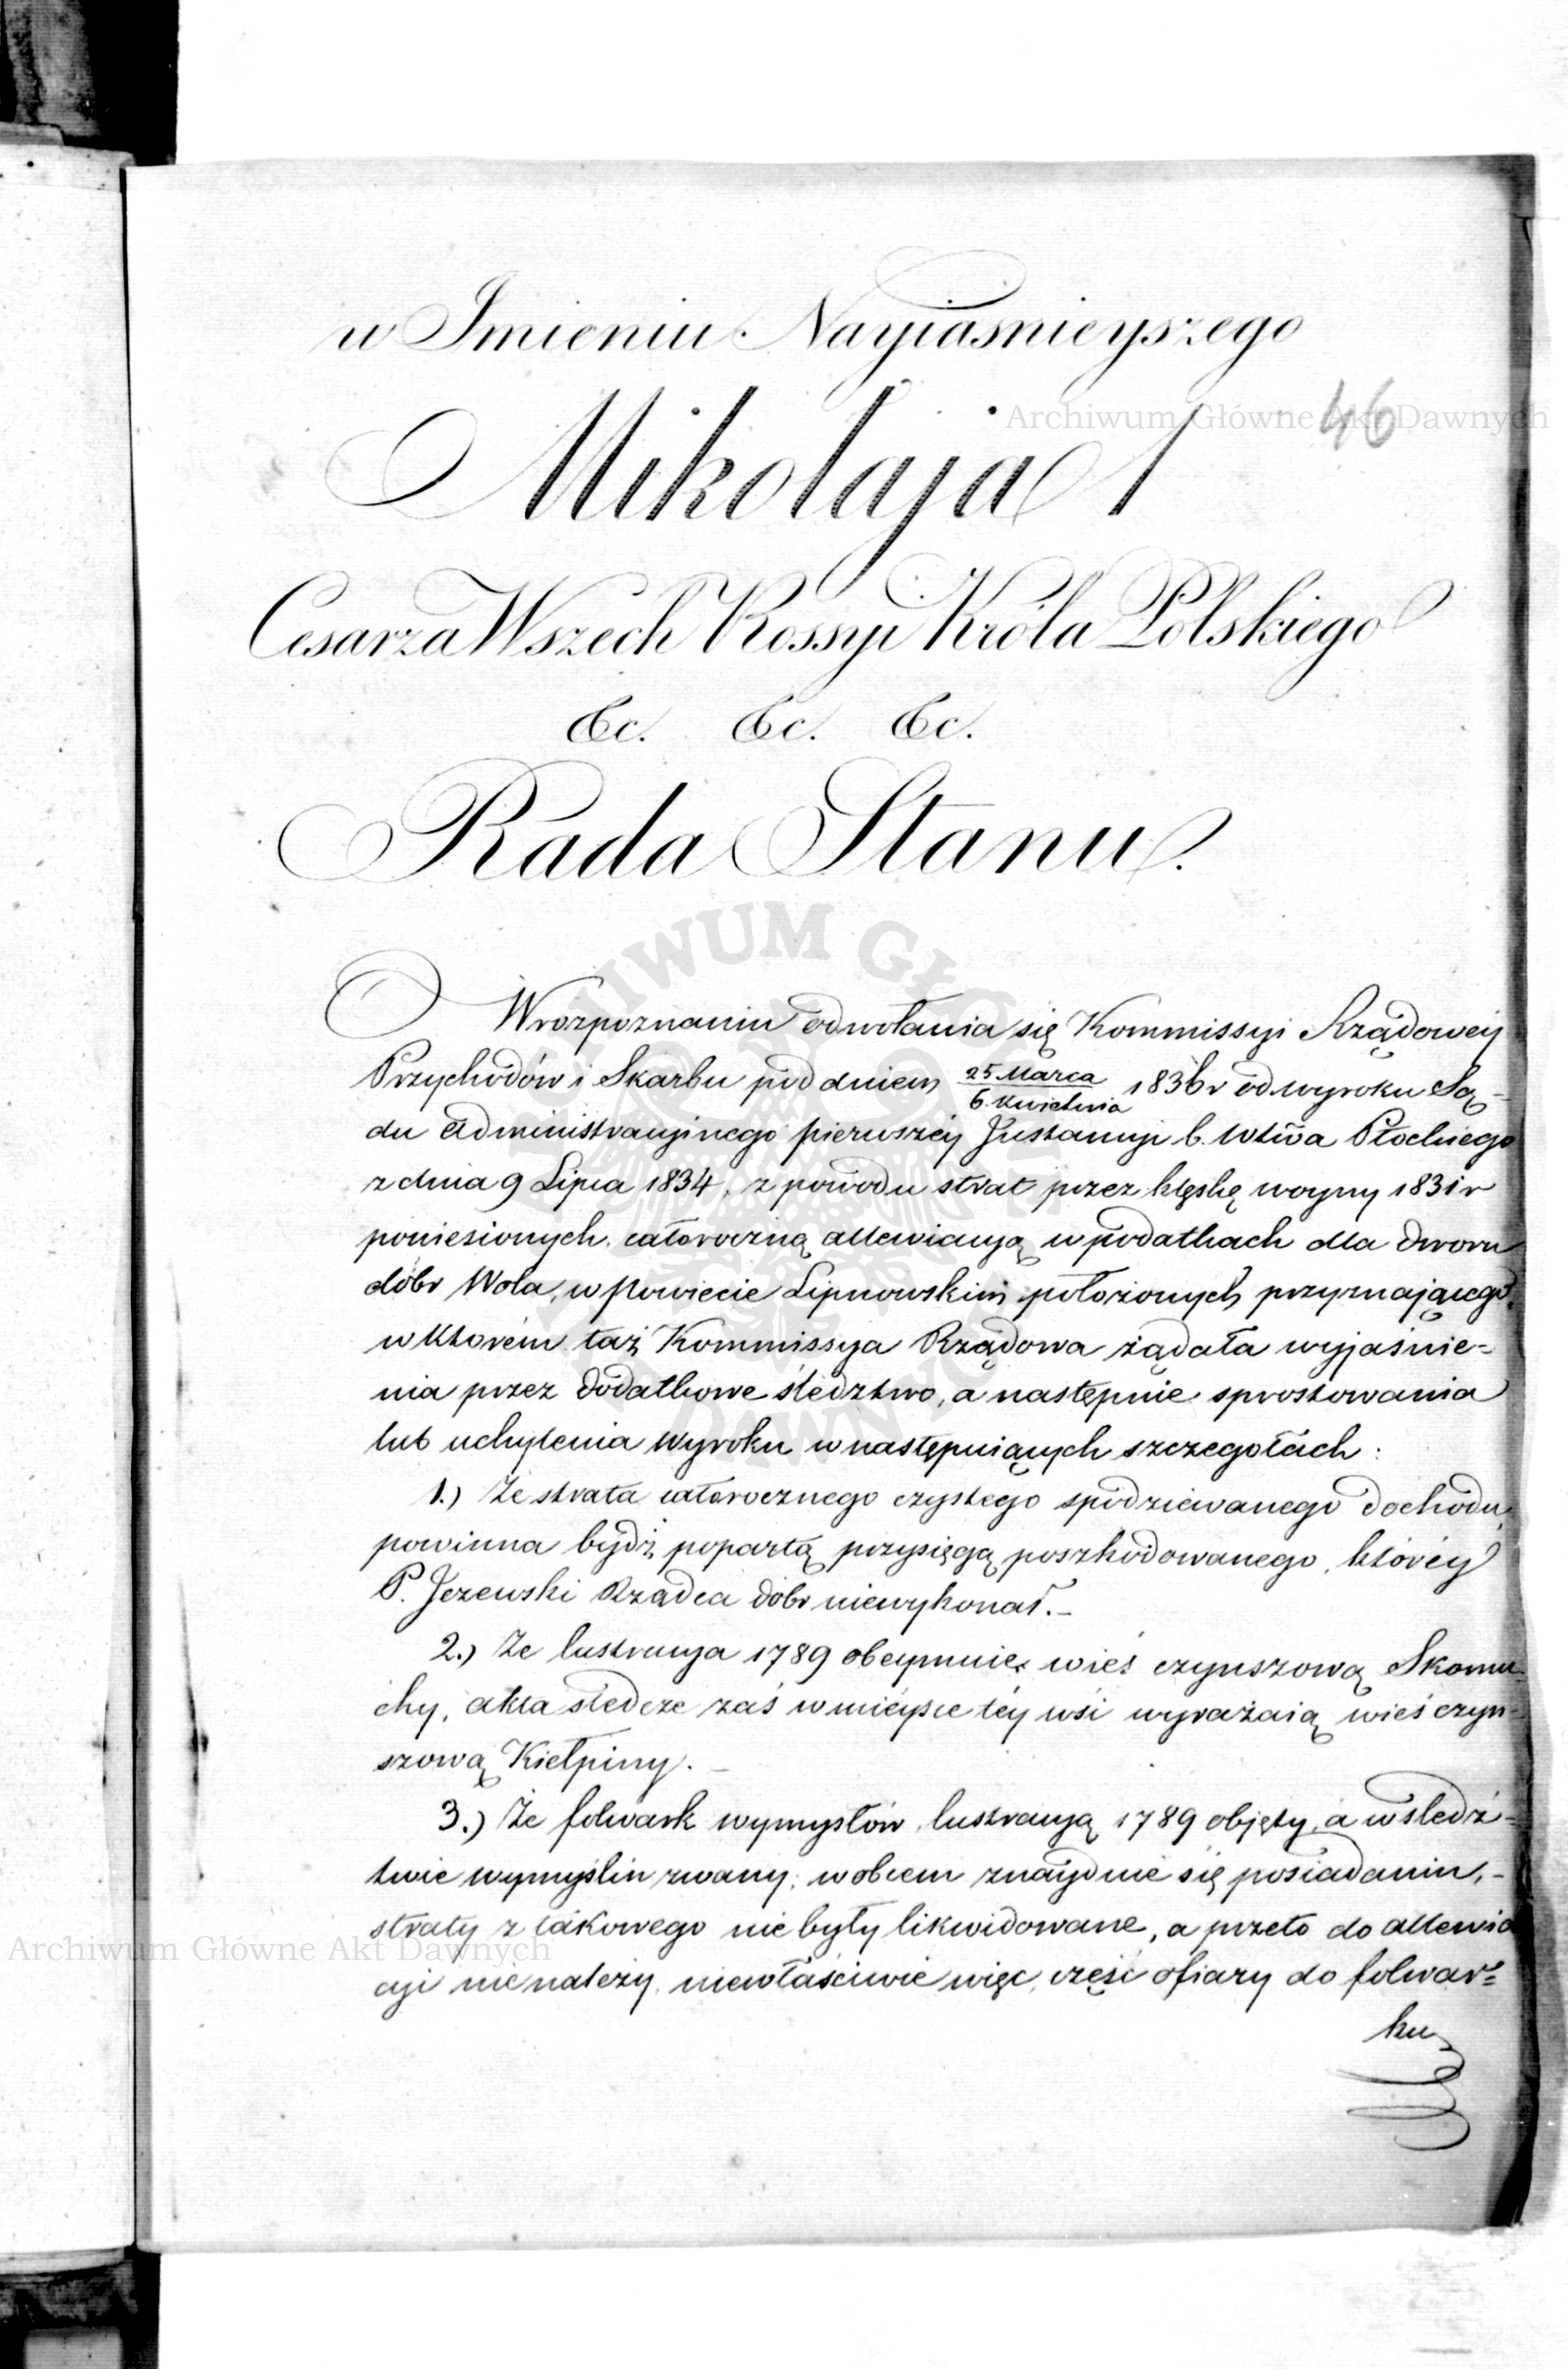 w Imieniu Nayiaśnieyszego
46
Mikołaja 1
Cesarza Wszech Rossyi Króla Polskiego
&c. &c. &c.
Rada Stanu.
W rozpoznaniu odwołania się Kommissyi Rządowéy
Przychodów i Skarbu pod dniem 25 Marca / 6 Kwietnia 1836 r od wyroku Są-
du Administracyjnego pierwszéy Instancyi b. Wdztwa Płockiego
z dnia 9 Lipca 1834, z powodu strat przez klęskę woyny 1831 r
poniesionych, całoroczną allewiacyą w podatkach dla dworu
dóbr Wola, w Powiecie Lipnowskim położonych przyznającego,
w którém taż Kommissya Rządowa żądała wyjaśnie=
nia przez dodatkowe śledztwo, a następnie sprostowania
lub uchylenia wyroku w następuiących szczegółach:
1.) Że strata całorocznego czystego spodziewanego dochodu,
powinna bydź popartą przysięgą poszkodowanego, któréy
P. Jezewski Rządca dóbr niewykonał. –
2.) Że lustracya 1789 obeymuie wieś czynszową Skomu-
chy, akta śledcze zaś w mieysce téy wsi wyrażaią wieś czyn-
szową Kiełpiny. –
3.) Że folwark wymysłów, lustracyą 1789 objęty, a w śledz-
twie wymyślin zwany, w obcem znayduie się posiadaniu, –
straty z takowego nie były likwidowane, a przeto do allewia
cyi nie należy, niewłaściwie więc, część ofiary do folwar=
ku
Archiwum Główne Akt Dawnych
Archiwum Główne Akt Dawnych
ARCHIWUM GŁÓWNE AKT DAWNYCH